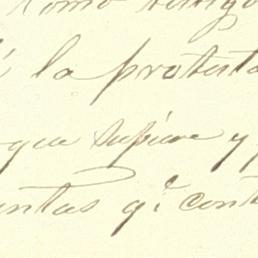 como testigo
é la protesta
que supiere y
untas q.e cont